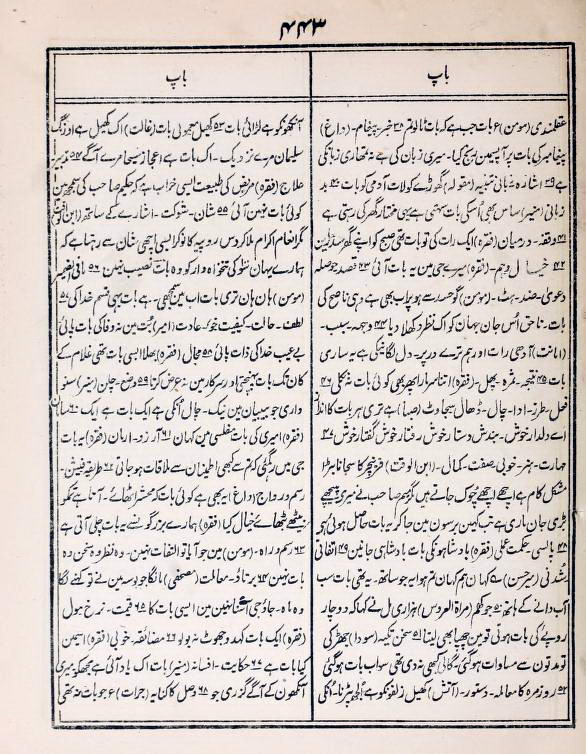 ۴۴۳
باپ
باپ
عقلمندی (مومن) ۶ بات جب ہے کہ بات ٹالو تم ۳۸ خبر۔ پیغام۔ (داغ)
پیغامبر کی بات پر آپس میں رنج کیا۔ میری زبان کی ہے نہ تمھاری زبان کی
ہے ۳۹ اشارہ زبانی تنبیہ (مقولہ) گھوڑے کو لات آدمی کو بات ۴۰ بد
زبانی (منیر) ساس بھی اُسکی بات سہتی ہے یہی مختار گھر کی رہتی ہے
۴۱ وقفہ۔ درمیان (فقرہ) ایک رات کی تو بات تھی صبح کو اپنے گھر سدھاریں
۴۲ خیال وہم۔ (فقرہ) میرے جی میں یہ بات آئی ۴۳ قصد حوصلہ
دعوی۔ ضد۔ ہٹ۔ (مومن) گو حسد سے ہو پر اب بھی ہے وہی ناصح کی
بات۔ ناحق اُس جان جہان کو اک نظر دکھلا دیا ۴۴ وجہ۔ سبب۔
(امانت) آدھی رات اور ہم ترے در پر۔ دل لگا نیکی ہے یہ ساری
بات ۴۵ نتیجہ۔ ثمرہ۔ پھل۔ (فقرہ) اتنا سر مارا پھر بھی کوئی بات نہ نکلی ۴۶
فعل۔ طرز۔ ادا۔ چال۔ ڈھال۔ سجاوٹ (صبا) ہے تری ہر بات کا انداز
اے دلدار خوش۔ بندش دستار خوش رفتار خوش گفتار خوش ۴۷
مہارت۔ ہنر۔ خوبی۔ صفت۔ کمال۔ (ابن الوقت) فرنیچر کا سجانا بڑا
مشکل کام ہے اچھے اچھے چوک جاتے ہیں مگر ہم صاحب نے میری پیچھے
بڑی جان ماری ہے تب کہیں برسوں میں جا کر یہ بات حاصل ہوئی ہے
۴۸ پالسی۔ حکمت عملی (فقرہ) بادشاہونکی بات بادشاہ ہی جانیں ۴۹ اتفاقی
شدنی (میرحسن) سے کہاں ہم کہاں تم ہوا یہ جو ساتھ۔ یہ تھی بات سب
آب دانے کے ہاتھ ۵۰ جو کھم (مراۃ العروس) ہزاری مل نے کہا کہ دو چار
روپے کی بات ہوتی تو میں چھپا بھی لیتا ۵۱ سخن تکیہ (سودا) جھڑکی
تو مدتوں سے مساوات ہو گئی۔ گالی کبھی نہ دی تھی سو اب بات ہو گئی
۵۲ روزمرہ کا معاملہ۔ دستور۔ (آتش) کھیل زلفونکو ہے اُلجھ پڑنا۔ اُنکی
آنکھونکو ہے لڑائی بات ۵۳ کھیل معمولی بات (غالب) اک کھیل ہے اورنگ
سلیمان مرے نزدیک۔ اک بات ہے اعجاز مسیحا مرے آگے ۵۴ تدبیر۔
علاج (فقرہ) مریض کی طبیعت ایسی خراب ہے کہ حکیم صاحب کی سمجھ میں
کوئی بات نہیں آئی ۵۵ شان۔ شوکت۔ اشارے کے ساتھ (ابن الوقت)
مگر انعام اکرام ملا کر دس روپیہ کا نوکر ایسی اچھی شان سے رہتا ہے کہ
ہمارے یہاں سٹو کی تنخواہ دار کو وہ بات نصیب نہیں ۵۶ مافی الضمیر
(مومن) ہاں ہاں تری بات اب میں سمجھی۔ ہے بات یہی قسم خدا کی ۵۷
لطف۔ حالت۔ کیفیت خو۔ عادت (امیر) بُت میں نہ وفا کی بات پائی
بے عیب خدا کی ذات پائی ۵۸ مجال (فقرہ) بھلا ایسی بات بھی غلام کے
کان تک بات پہنچتی اور سرکار میں نہ عرض کرتا ۵۹ وضع۔ چلن (میر) سنو
واری جو بیبیاں ہیں نیک۔ چال اُنکی ہے ایک بات ہے ایک ۶۰ سامان
(فقرہ) امیری کی بات مفلسی میں کہاں ۶۱ آرزو۔ ارمان (فقرہ) یہ بات
جی میں رہ گئی کہ تم سے کبھی اطمینان سے ملاقات ہو جاتی ۶۲ طریقہ فیشن۔
رسم و رواج (داغ) یہ بھی ہے کوئی بات کہ محشر اٹھائے۔ آتا ہے تمکو
بیٹھے بٹھاے خیال کیا (فقرہ) ہمارے بزرگوں سے یہ بات چلی آتی ہے
۶۳ رسم و راہ۔ (مومن) میں جو آیا تو التفات نہیں۔ وہ نظر وہ سخن وہ
بات نہیں ۶۴ برتاؤ۔ معاملت (مصحفی) مانگا جو بوسہ میں نے تو کہنے لگا
وہ ماہ۔ جاؤ جی آشناؤں میں ایسی بات کا ۶۵ قیمت۔ نرخ مول
(فقرہ) ایک بات کہدو جھوٹ نہ بولو ۶۶ مضائقہ۔ خوبی (فقرہ) اسمیں
کیا بات ہے ۶۷ حکایت۔ افسانہ (منیر) بات اک یاد آئی ہے مجھکو۔ میری
آنکھوں کے آگے گزری جو ۶۸ وصل کا کنایہ (جرات) ۶ جو بات نہ تھی